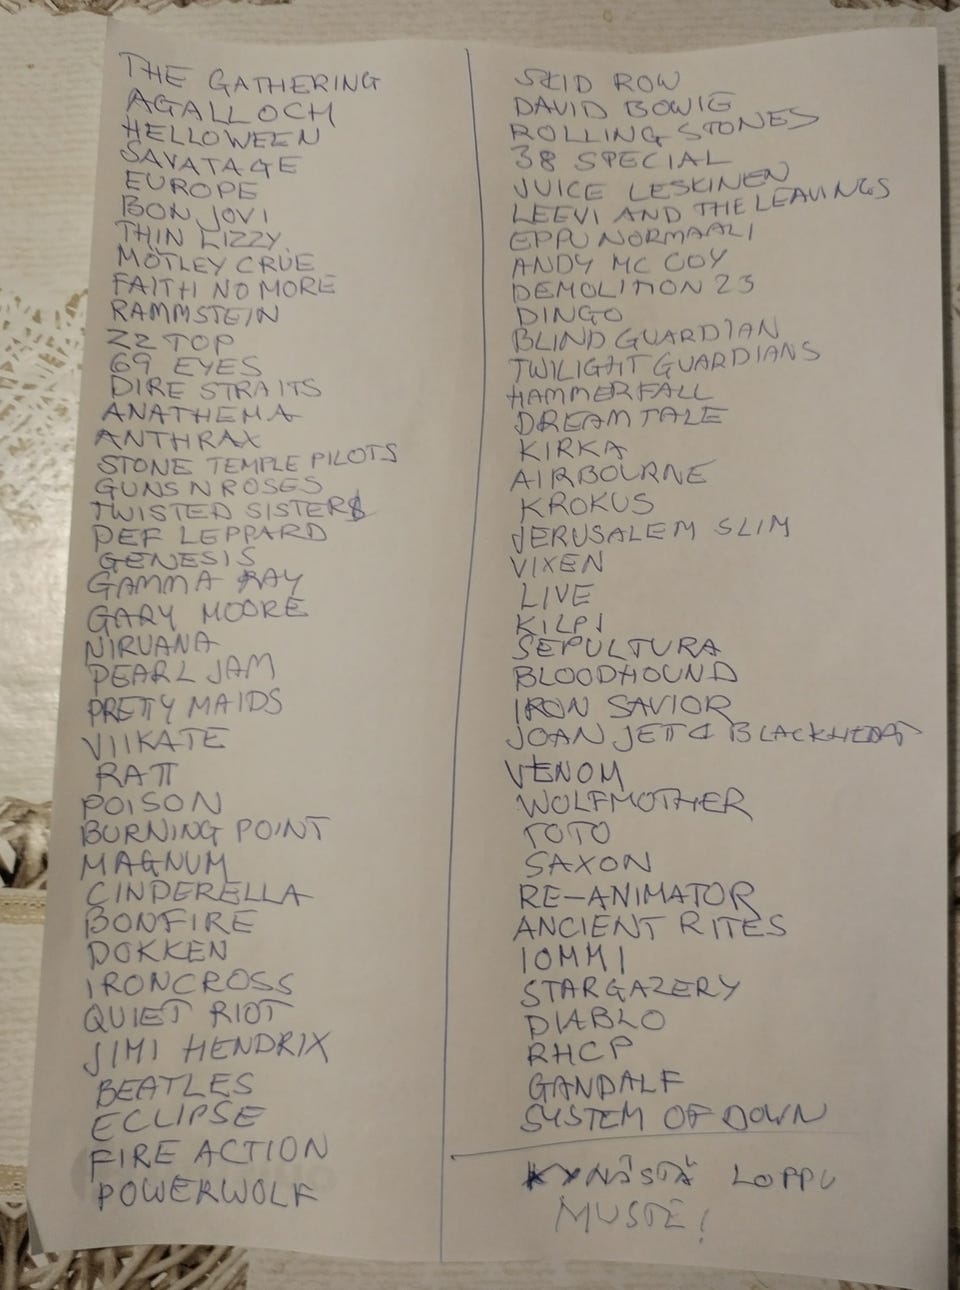 THE GATHERING
AGALLOCH
HELLOWEEN
SAVATAGE
EUROPE
BON JOVI
THIN LIZZY
MÖTLEY CRÜE
FAITH NO MORE
RAMMSTEIN
ZZ TOP
69 EYES
DIRE STRAITS
ANATHEMA
ANTHRAX
STONE TEMPLE PILOTS
GUNS N ROSES
TWISTED SISTER
DEF LEPPARD
GENESIS
GAMMA RAY
GARY MOORE
NIRVANA
PEARL JAM
PRETTY MAIDS
VIIKATE
RATT
POISON
BURNING POINT
MAGNUM
CINDERELLA
BONFIRE
DOKKEN
IRONCROSS
QUIET RIOT
JIMI HENDRIX
BEATLES
ECLIPSE
FIRE ACTION
POWERWOLF
SKID ROW
DAVID BOWIE
ROLLING STONES
38 SPECIAL
JUICE LESKINEN
LEEVI AND THE LEAVINGS
EPPU NORMAALI
ANDY MC COY
DEMOLITION 23
DINGO
BLIND GUARDIAN
TWILIGHT GUARDIANS
HAMMERFALL
DREAMTALE
KIRKA
AIRBOURNE
KROKUS
JERUSALEM SLIM
VIXEN
LIVE
KILPI
SEPULTURA
BLOODHOUND
IRON SAVIOR
JOAN JETT & BLACKHEART
VENOM
WOLFMOTHER
TOTO
SAXON
RE-ANIMATOR
ANCIENT RITES
IOMMI
STARGAZERY
DIABLO
RHCP
GANDALF
SYSTEM OF DOWN
KYNÄSTÄ LOPPU
MUSTE!